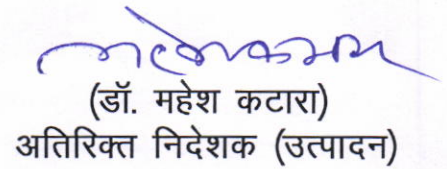 (डॉ. महेश कटारा)
अतिरिक्त निदेशक (उत्पादन)